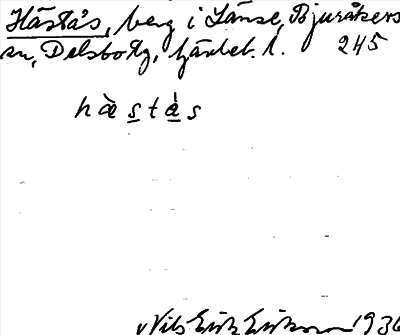 Hästås, berg i Länse, Bjuråkers
sn, Delsbo tg, Gävleb. l. 245
hàstàs
Nils Erik Eriksson 1936